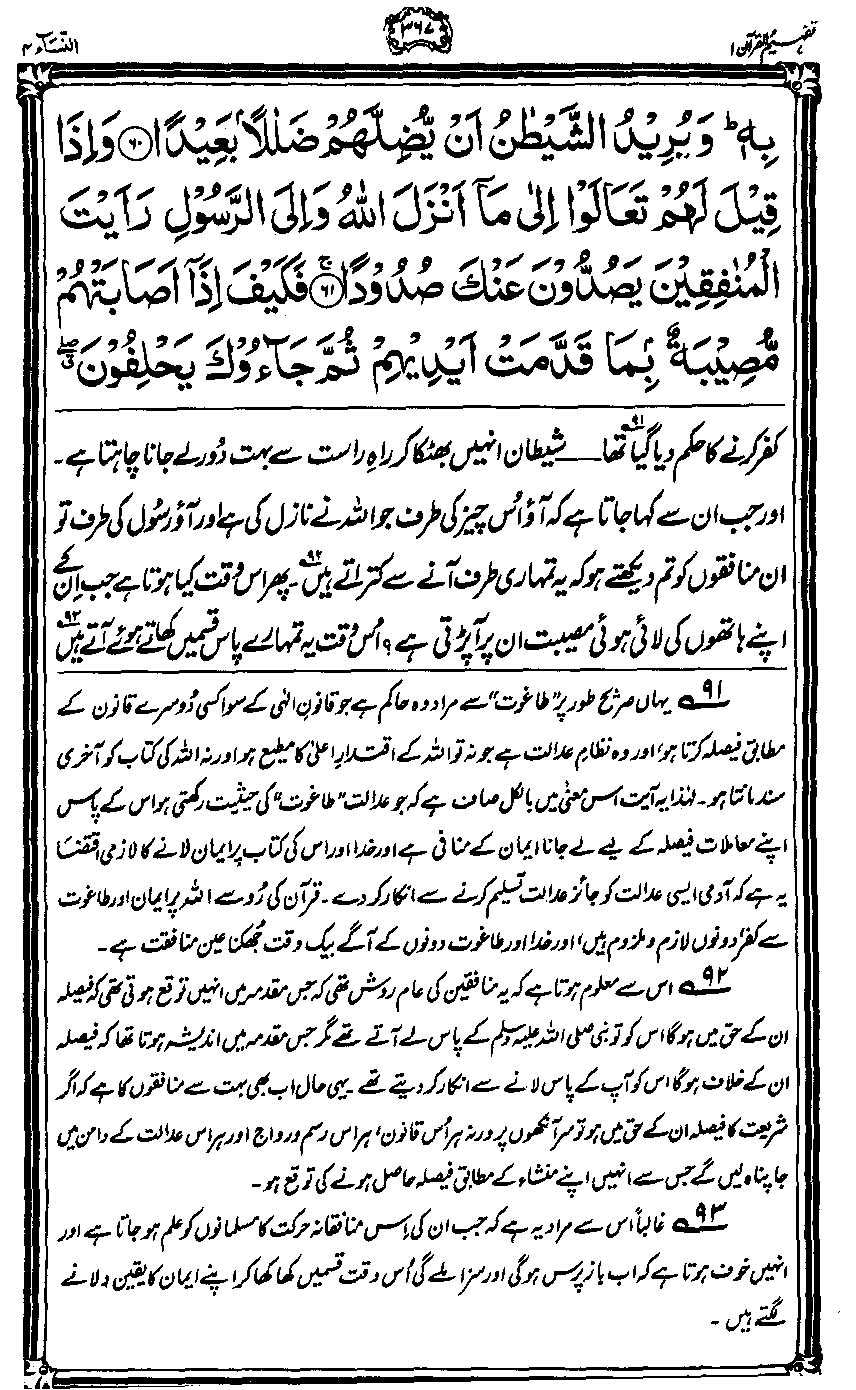 تفہیم القرآن ۱
۳۶۷
النسآء ۴
بِهٖ ؕ وَيُرِيْدُ الشَّيْطٰنُ اَنْ يُّضِلَّهُمْ ضَلٰلًاۢ بَعِيْدًا ﴿۶۰﴾ وَاِذَا
قِيْلَ لَهُمْ تَعَالَوْا اِلٰى مَاۤ اَنْزَلَ اللّٰهُ وَاِلَى الرَّسُوْلِ رَاَيْتَ
الْمُنٰفِقِيْنَ يَصُدُّوْنَ عَنْكَ صُدُوْدًا ۚ﴿۶۱﴾ فَكَيْفَ اِذَاۤ اَصَابَتْهُمْ
مُّصِيْبَةٌۢ بِمَا قَدَّمَتْ اَيْدِيْهِمْ ثُمَّ جَآءُوْكَ يَحْلِفُوْنَ ۖۗ
کفر کرنے کا حکم دیا گیا تھا۹۱ـــــ شیطان انہیں بھٹکا کر راہِ راست سے بہت دُور لے جانا چاہتا ہے۔
اور جب ان سے کہا جاتا ہے کہ آؤ اُس چیز کی طرف جو اللہ نے نازل کی ہے اور آؤ رسُول کی طرف تو
ان منافقوں کو تم دیکھتے ہو کہ یہ تمہاری طرف آنے سے کتراتے ہیں۹۲۔ پھر اس وقت کیا ہوتا ہے جب اِن کے
اپنے ہاتھوں کی لائی ہوئی مصیبت ان پر آ پڑتی ہے؟ اُس وقت یہ تمہارے پاس قسمیں کھاتے ہوئے آتے ہیں۹۳
۹۱ یہاں صریح طور پر ”طاغوت“ سے مراد وہ حاکم ہے جو قانونِ الٰہی کے سوا کسی دُوسرے قانون کے
مطابق فیصلہ کرتا ہو، اور وہ نظامِ عدالت ہے جو نہ تو اللہ کے اقتدارِ اعلیٰ کا مطیع ہو اور نہ اللہ کی کتاب کو آخری
سند مانتا ہو۔ لہٰذا یہ آیت اس معنیٰ میں بالکل صاف ہے کہ جو عدالت ”طاغوت“ کی حیثیت رکھتی ہو اس کے پاس
اپنے معاملات فیصلہ کے لیے لے جانا ایمان کے منافی ہے اور خدا اور اس کی کتاب پر ایمان لانے کا لازمی اقتضا
یہ ہے کہ آدمی ایسی عدالت کو جائز عدالت تسلیم کرنے سے انکار کر دے۔ قرآن کی رُو سے اللہ پر ایمان اور طاغوت
سے کفر، دونوں لازم و ملزوم ہیں، اور خدا اور طاغوت دونوں کے آگے بیک وقت جُھکنا عین منافقت ہے۔
۹۲ اس سے معلوم ہوتا ہے کہ یہ منافقین کی عام روش تھی کہ جس مقدمہ میں انہیں توقع ہوتی تھی کہ فیصلہ
ان کے حق میں ہو گا اس کو تو نبی صلی اللہ علیہ وسلم کے پاس لے آتے تھے مگر جس مقدمہ میں اندیشہ ہوتا تھا کہ فیصلہ
ان کے خلاف ہو گا اس کو آپ کے پاس لانے سے انکار کر دیتے تھے۔ یہی حال اب بھی بہت سے منافقوں کا ہے کہ اگر
شریعت کا فیصلہ ان کے حق میں ہو تو سر آنکھوں پر ورنہ ہر اُس قانون، ہر اس رسم و رواج اور ہر اس عدالت کے دامن میں
جا پناہ لیں گے جس سے انہیں اپنے منشاء کے مطابق فیصلہ حاصل ہونے کی توقع ہو۔
۹۳ غالباً اس سے مراد یہ ہے کہ جب ان کی اِس منافقانہ حرکت کا مسلمانوں کو علم ہو جاتا ہے اور
انہیں خوف ہوتا ہے کہ اب باز پرس ہو گی اور سزا ملے گی اُس وقت قسمیں کھا کھا کر اپنے ایمان کا یقین دلانے
لگتے ہیں۔